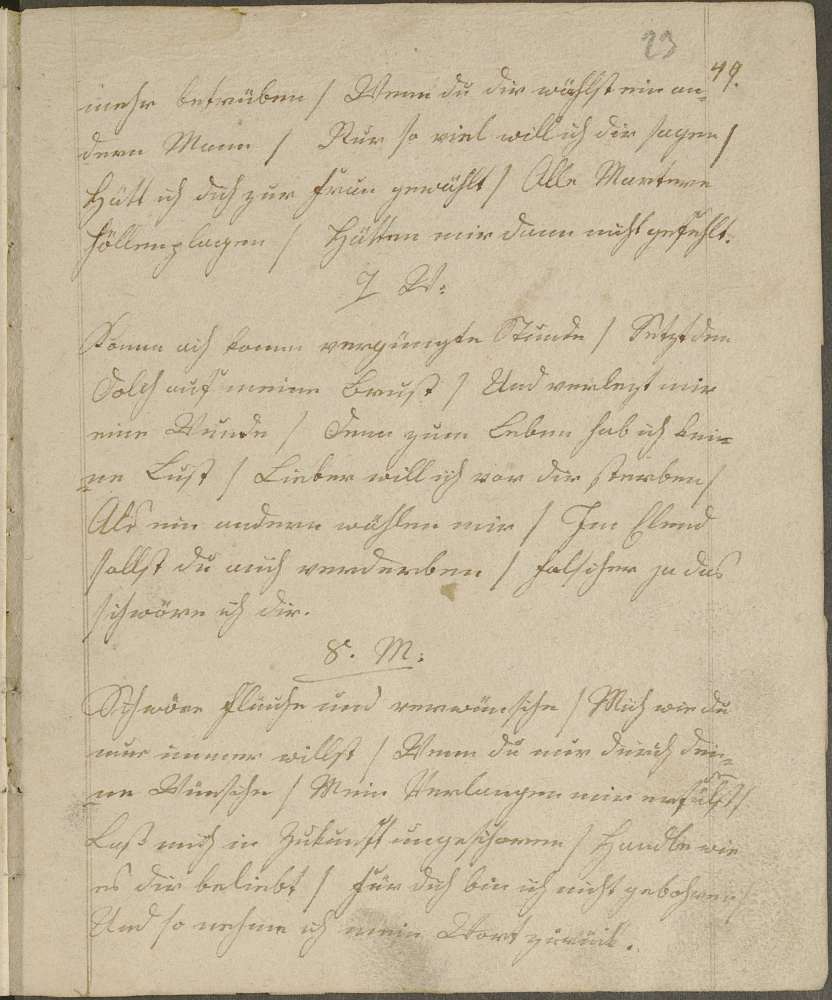 23
49.
mehr betrüben / Wenn du dir wählst ein an=
dern Mann / Nur so viel will ich dir sagen /
Hätt ich dich zur Frau gewählt / Alle Martern
Höllenplagen / Hätten mir dann nicht gefehlt.
7 W:
Komm ach komm vergüngte Stunde / Setzt den
Dolch auf meine Brust / Und verlezt mir
eine Wunde / Denn zum Leben hab ich kei=
ne Lust / Lieber will ich vor dir sterben /
Als ein andern wählen mir / Im Elend
sollst du auch verderben / falscher ja das
schwöre ich dir.
8. M:
Schwöre fluche und verwünsche / Mich wie du
nur immer willst / Wenn du nur durch dei=
ne Wünsche / Mein Verlangen mir erfüllst /
Laß mich in Zukunft ungeschoren / Handle wie
es dir beliebt / für dich bin ich nicht gebohren /
Und so nehme ich mein Wort zurück.